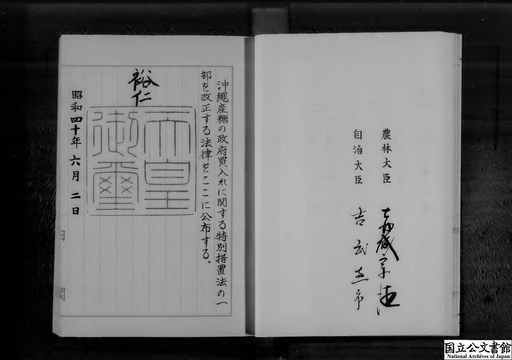 沖縄産糖の政府買入れに関する特別措置法の一
部を改正する法律をここに公布する。
裕仁
天皇
御璽
昭和四十年六月二日
農林大臣
自治大臣 吉武恵市
国立公文書館
National Archives of Japan